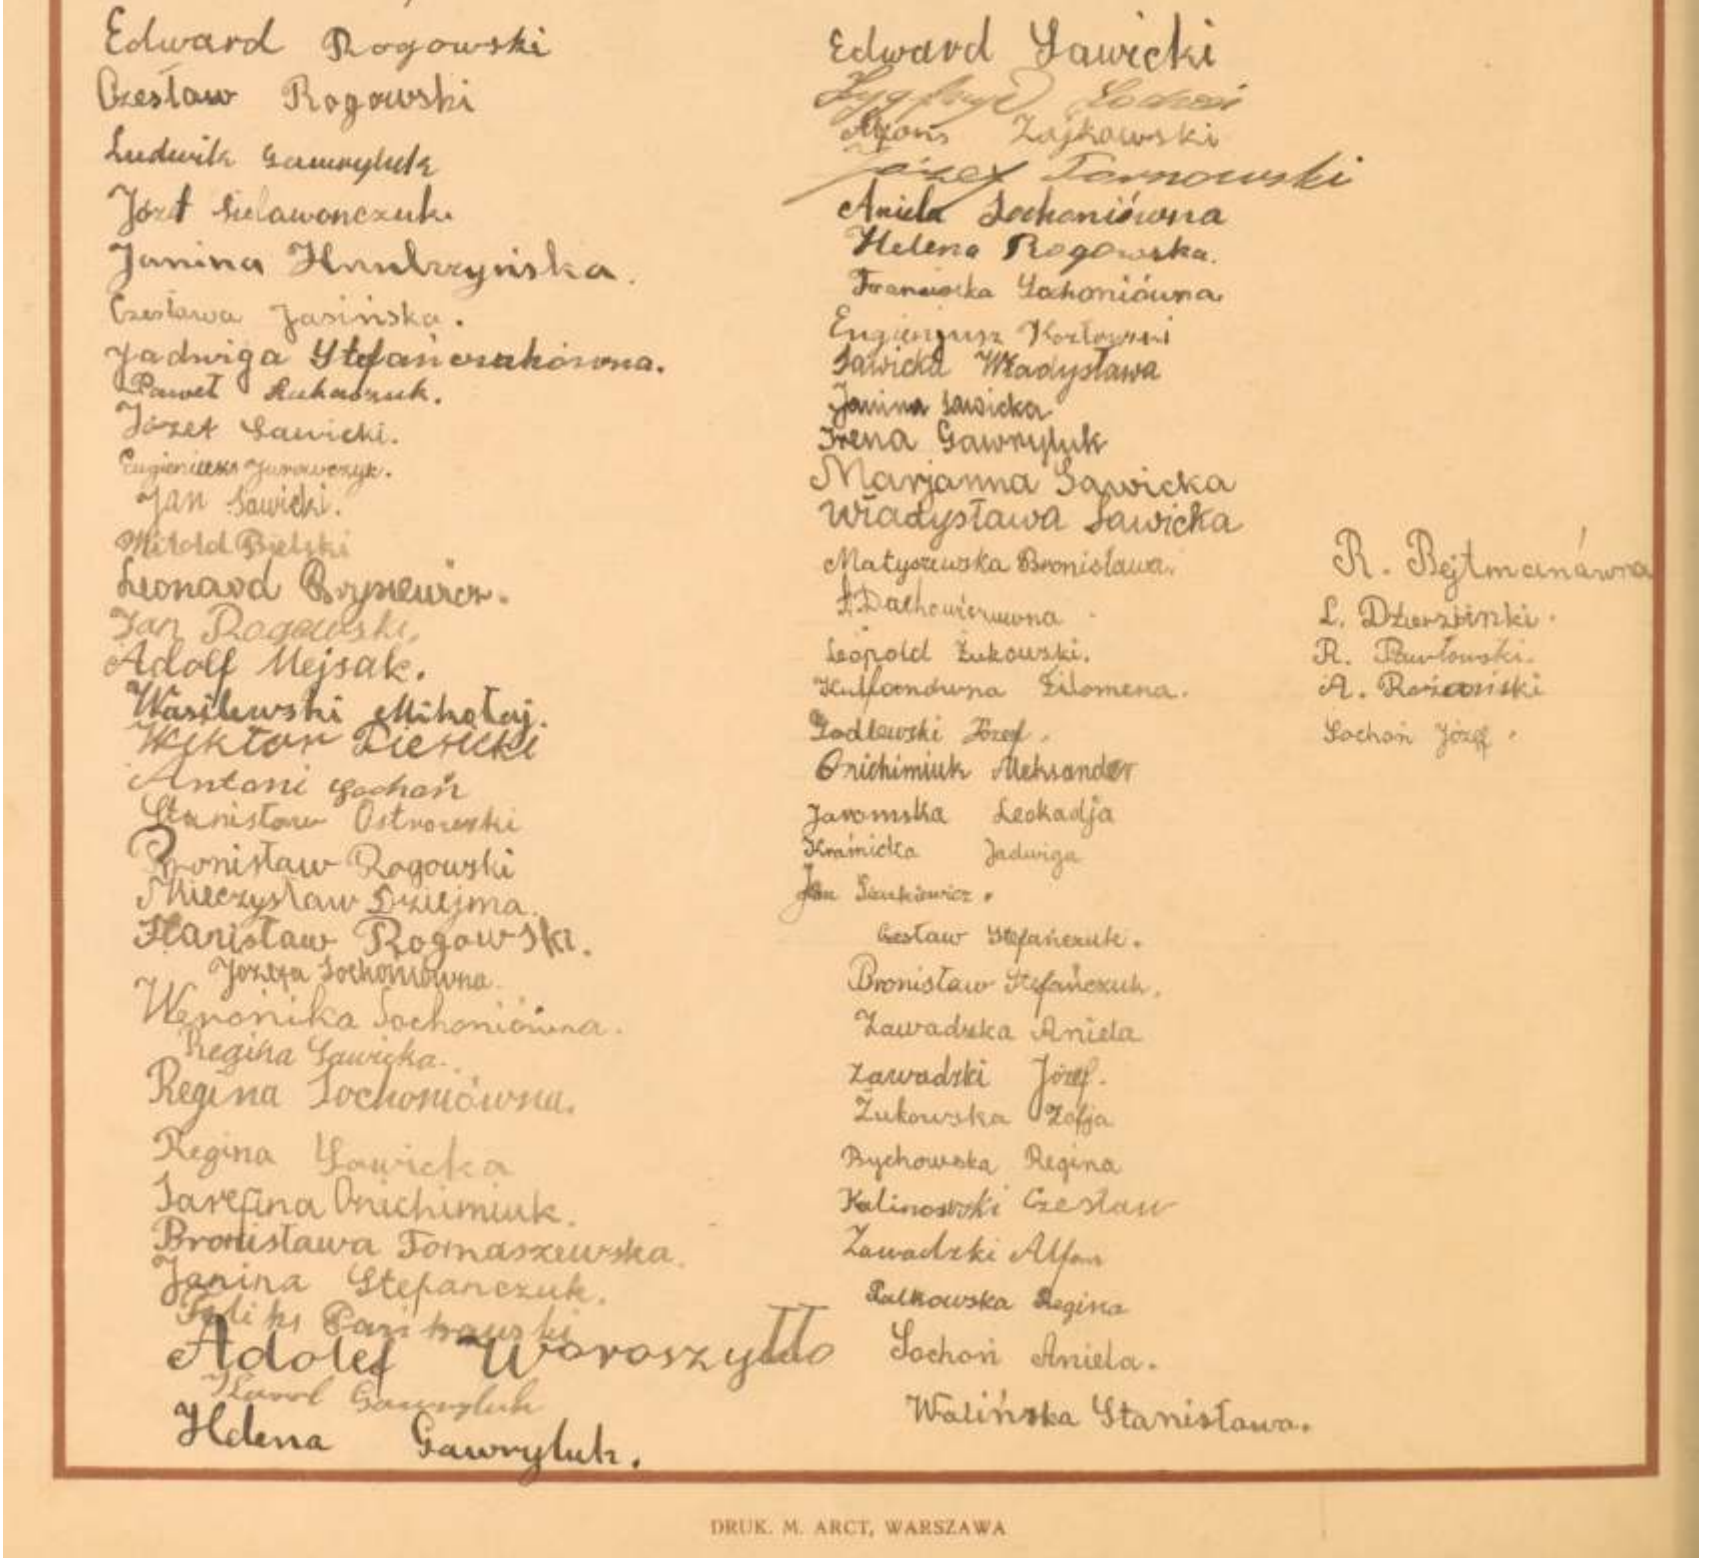 Edward Rogowski
Czesław Rogowski
Ludwik Gawryluk
Józef
Janina
Czesława Jasińska.
Jadwiga Stefańczukówna.
Paweł Łukaszuk.
Józef Sawicki.
Eugeniusz
Jan Sawicki.
Witold Bielski
Leonard
Jan Rogowski.
Adolf Mejsak.
Wasilewski Mikołaj.
Wiktor
Antoni Sochoń
Stanisław Ostrowski
Bronisław Rogowski
Mieczysław Dziejma.
Stanisław Rogowski.
Józefa Sochoniówna.
Weronika Sochoniówna.
Regina Sawicka.
Regina Sochoniówna.
Regina Sawicka
Onichimiuk.
Bronisława Tomaszewska.
Janina Stefańczuk.
Feliks
Adolef Woroszyłło
Karol Gawryluk
Helena Gawryluk.
Edward Sawicki
Zygfryd Sochoń
Alfons Zajkowski
Józef Tarnowski
Aniela Sochoniówna
Helena Rogowska.
Franciszka Sochoniówna
Eugienjusz Kozłowski
Sawicka Władysława
Janina Sawicka
Irena Gawryluk
Marjanna Sawicka
Władysława Sawicka
Matyszewska Bronisława.
Leopold Żukowski.
Filomena.
Godlewski Józef.
Onichimiuk Aleksander
Jaromska Leokadja
Jadwiga
Jan
Czesław Stefańczuk.
Bronisław Stefańczuk.
Zawadzka Aniela
Zawadzki Józef.
Żukowska Zofja
Bychowska Regina
Kalinowski Czesław
Zawadzki Alfons
Regina
Sochoń Aniela.
Walińska Stanisława.
R. Rejtmanówna
L.
R. Pawłowski.
A. Różański
Sochoń Józef.
DRUK. M. ARCT, WARSZAWA